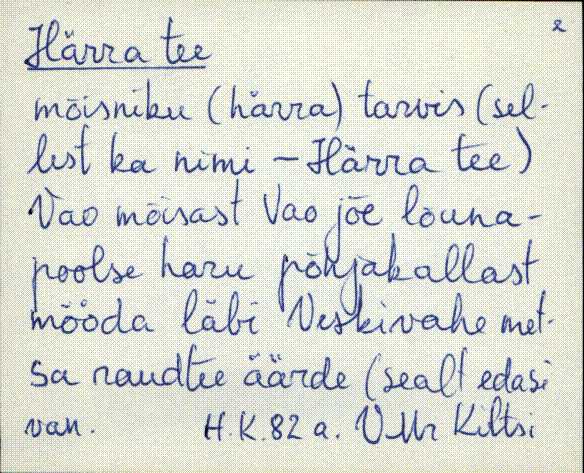 2
Härra tee
mõisniku (härra) tarvis (sel-
lest ka nimi - Härra tee)
Vao mõisast Vao jõe lõuna-
poolse haru põhjakallast
mööda läbi Veskivahe met-
sa raudtee äärde (sealt edasi
van. H.K. 82 a. VMr Kiltsi